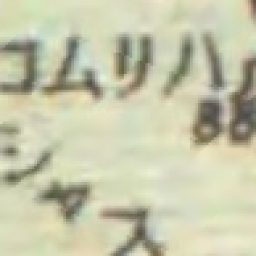 コムリハ
88
シャス